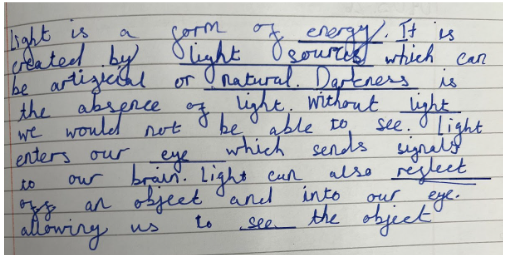 light is a form of energy. It is
created by light sources which can
be artificial or natural. Darkness is
the absence of light. Without light
we would not be able to see. Light
enters our eye which sends signals
to our brain. Light can also reflect
off an object and into our eye.
allowing us to see the object